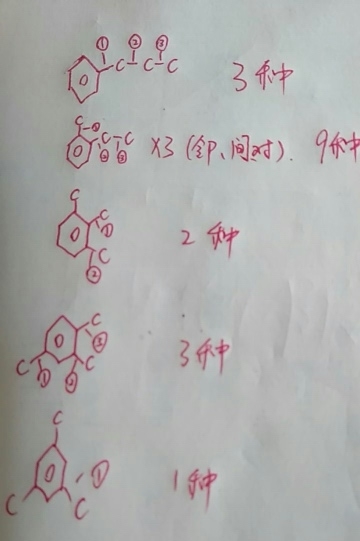 ① ② ③
C C C 3种
C ① C C ② ③ ×3 (邻、间、对). 9种
C C ① C ② 2种
C ③ C ② C ① 3种
C C C ① 1种